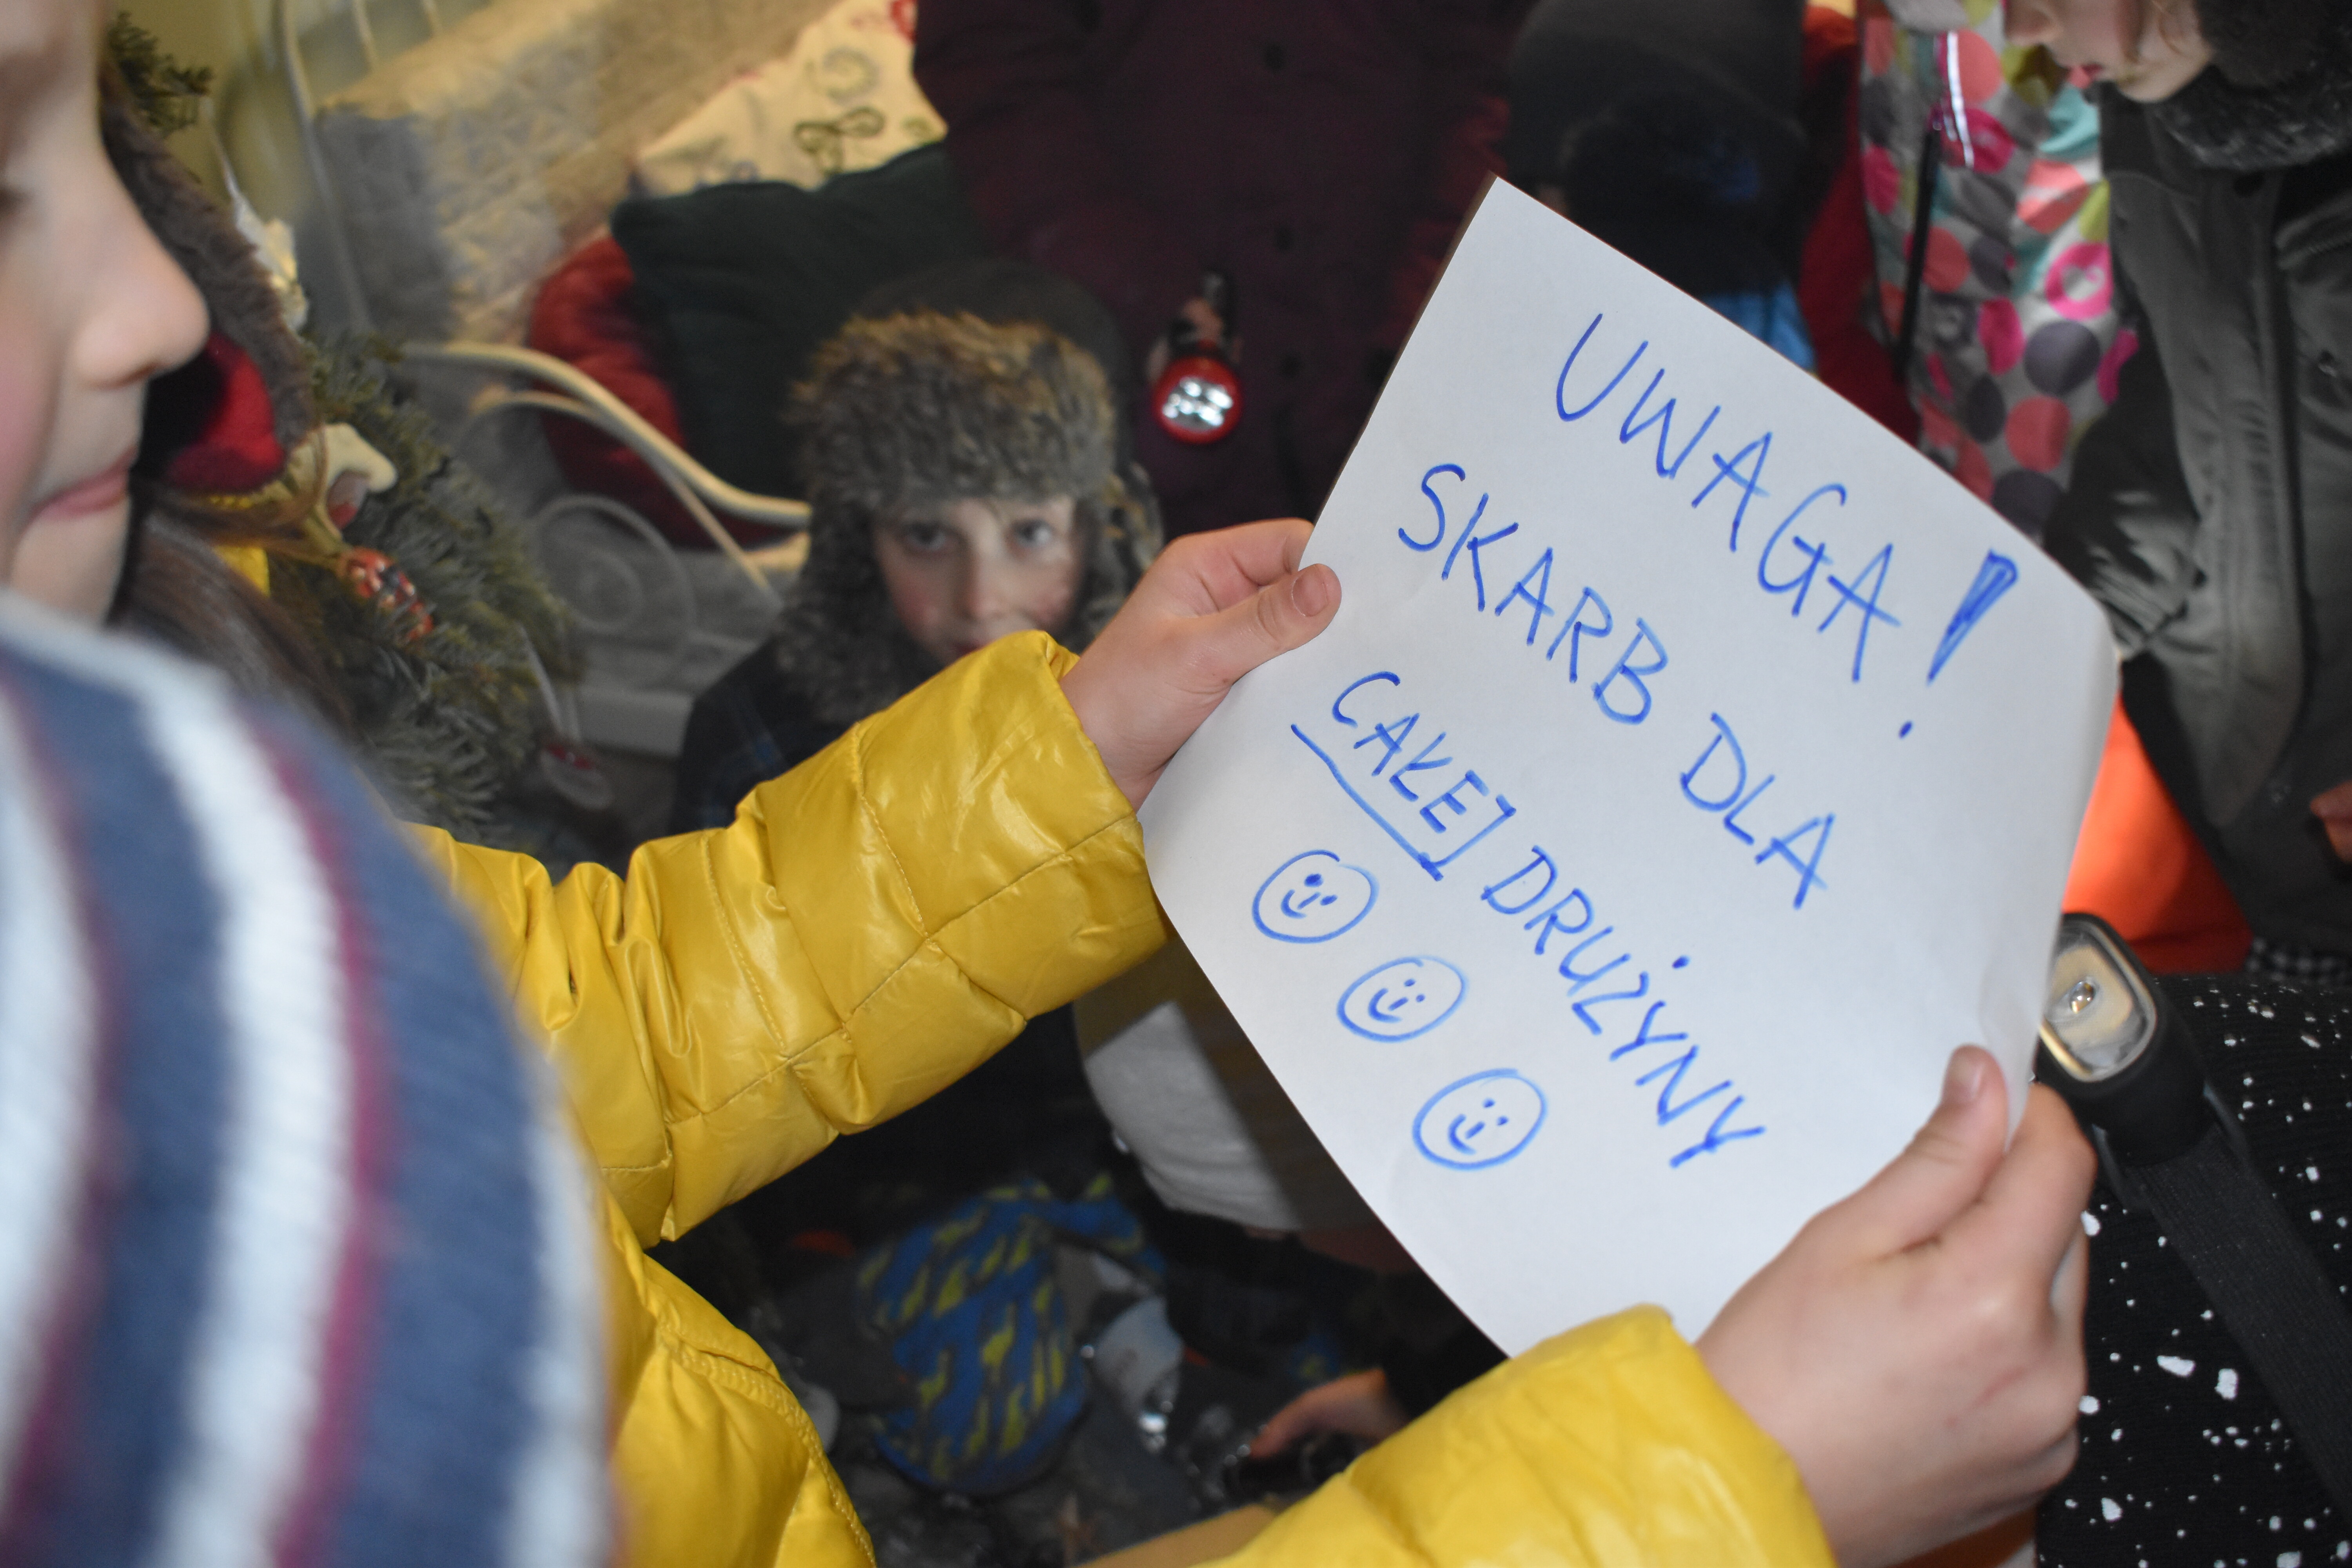 UWAGA!
SKARB DLA
CAŁEJ DRUŻYNY